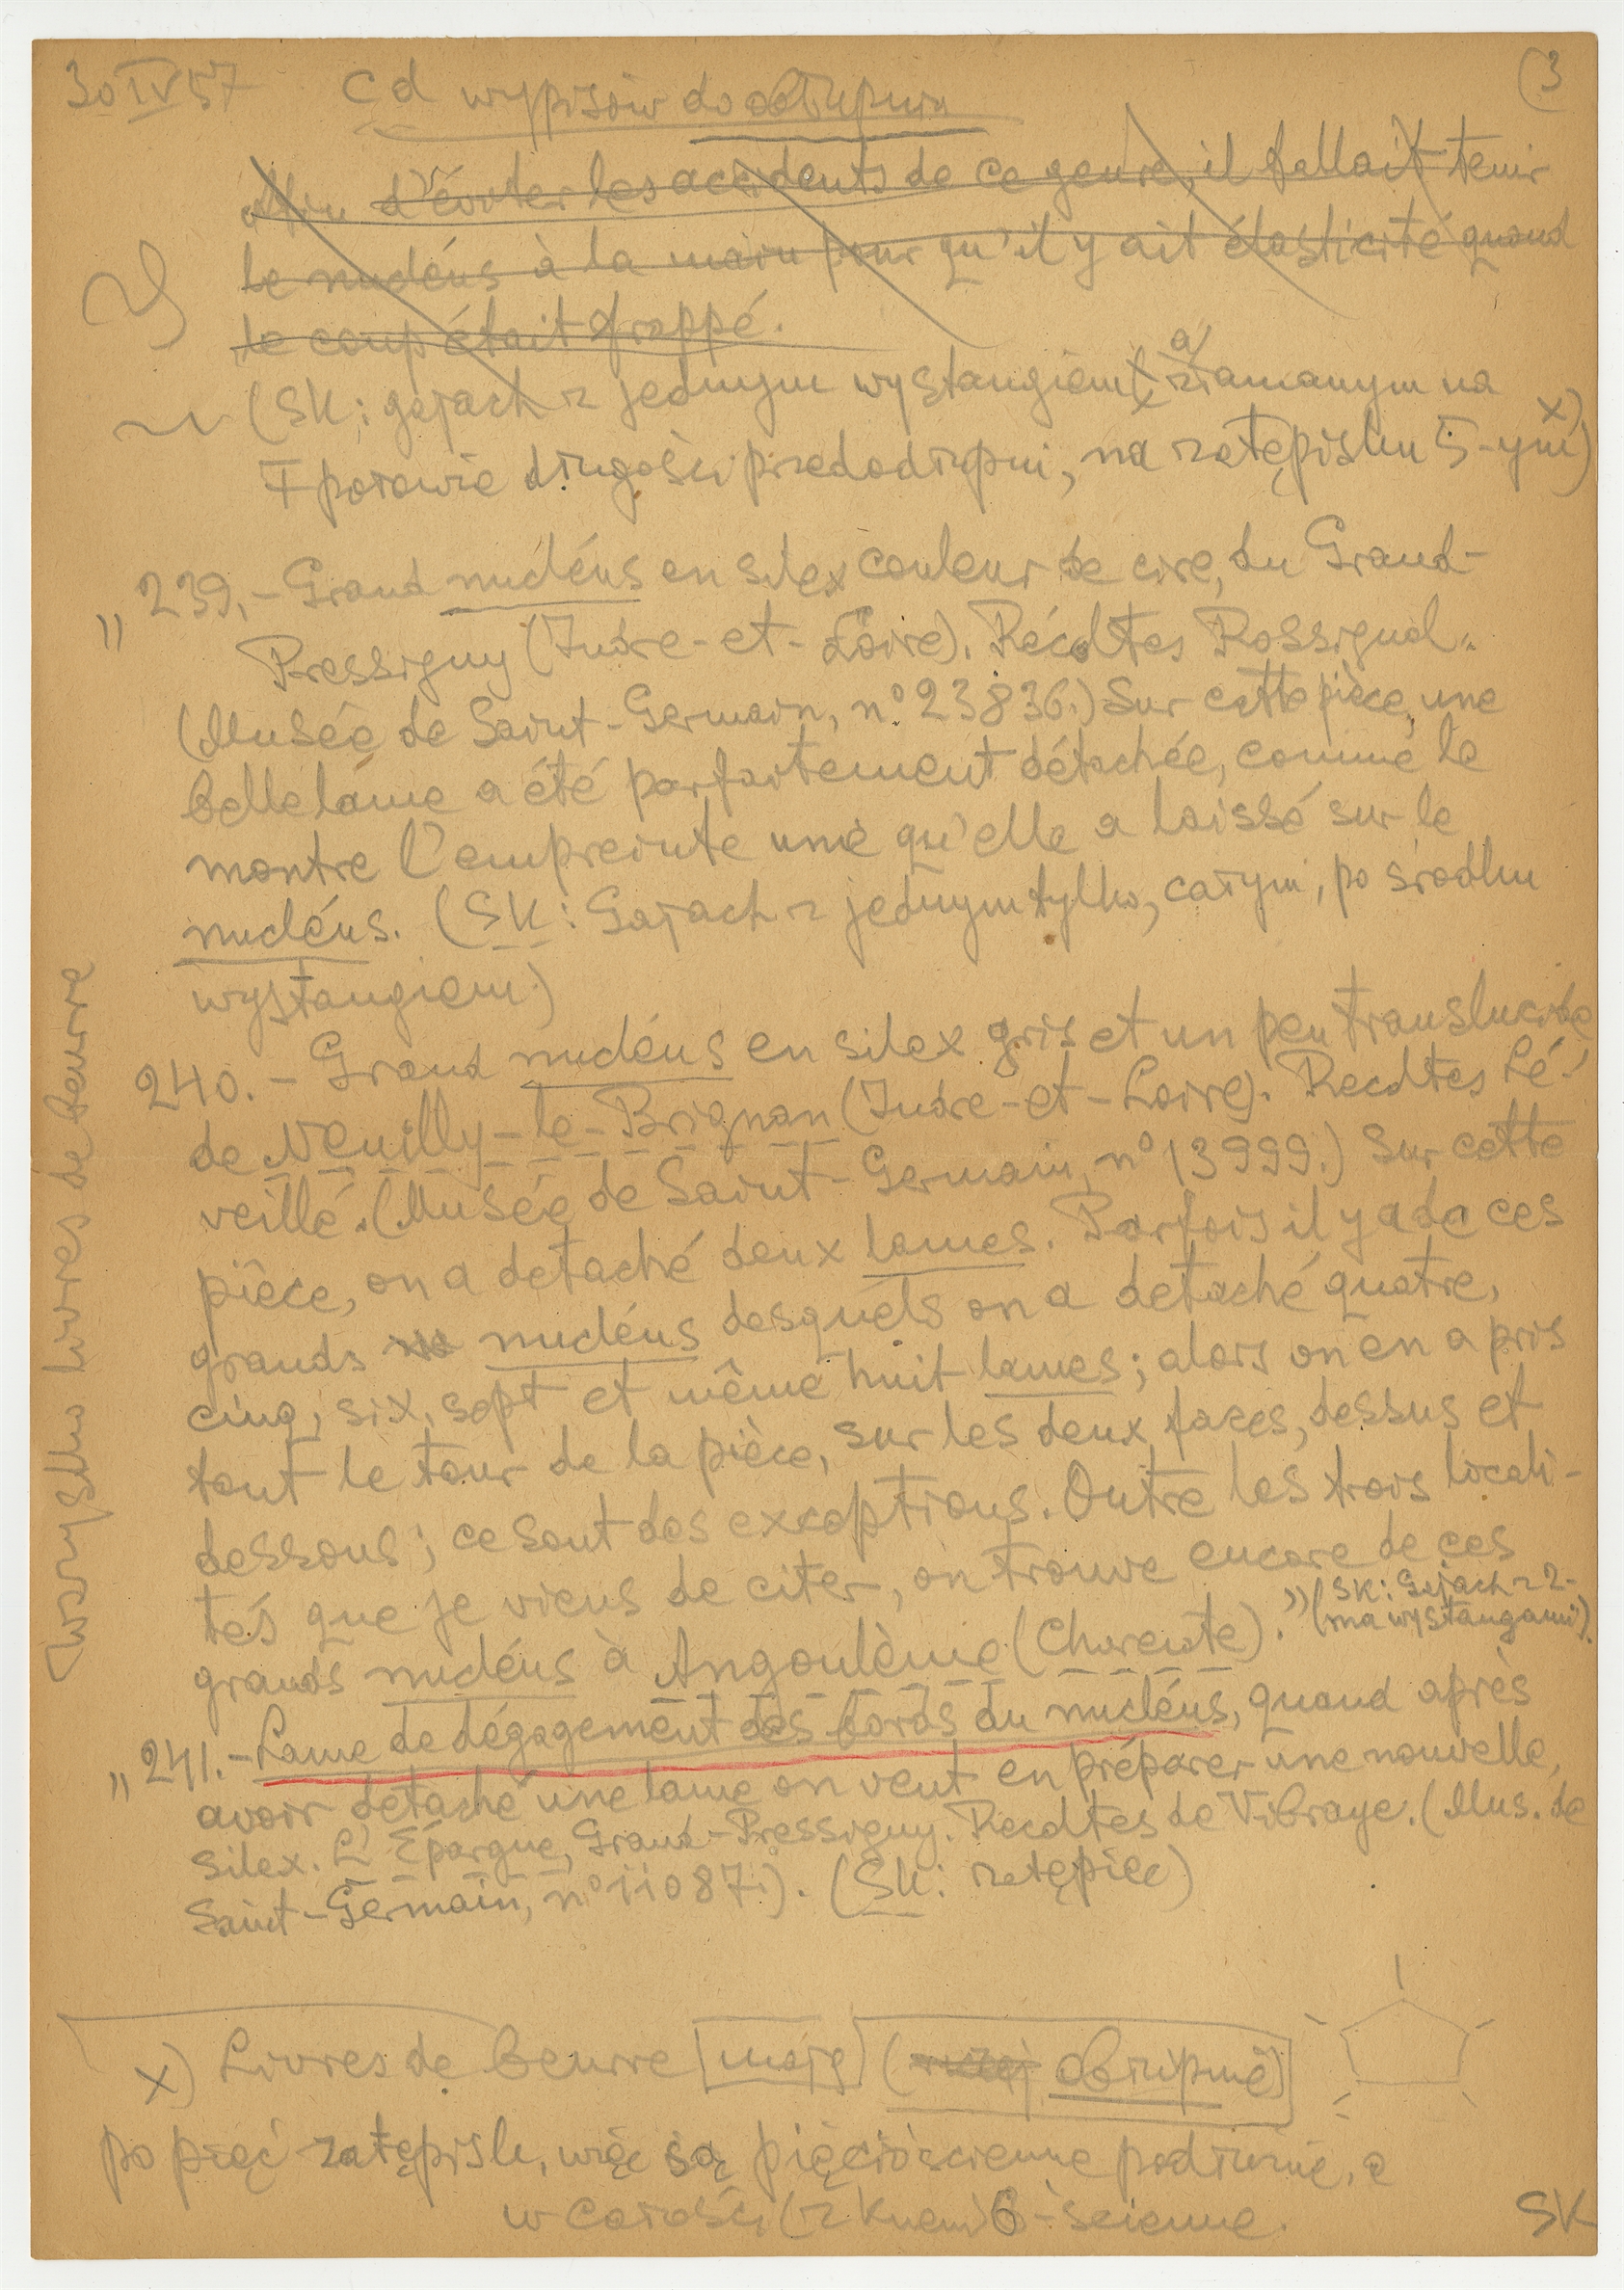 30 IV 57 cd wypisów do obłupnia (3
afin d'éviter les accidents de ce genre, il fallait tenir
le nucléus à la main pour qu'il y ait élasticité quand
le coup était frappé.
(SK: gajach z jednym wystangiem, a złamanym na
połowie długości przedodłupni, na zatępisku 5-ym) x)
" 239. - Grand nucléus en silex couleur de cire, du Grand-
Pressigny (Indre-et-Loire). Récoltes Rossignol.
(Musée de Saint-Germain, n° 23836.) Sur cette pièce, une
belle lame a été parfaitement détachée, comme le
montre l'empreinte unie qu'elle a laissé sur le
nucléus. (SK: Gajach z jednym tylko, całym, po środku
wystangiem.)
240. - Grand nucléus en silex gris et un peu translucide
de Neuilly-le-Brignan (Indre-et-Loire). Recoltes Lé-
veillé. (Musée de Saint-Germain, n° 13999.) Sur cette
pièce, on a detaché deux lames. Parfois il y a de ces
grands nucléus desquels on a detaché quatre,
cinq, six, sept et même huit lames; alors on en a pris
tout le tour de la pièce, sur les deux faces, dessus et
dessous; ce sont des exceptions. Outre les trois locali-
tés que je viens de citer, on trouve encore de ces
grands nucléus à Angoulème (Charente). " (SK: Gajach z 2-
ma wystangami).
" 241. - Lame de dégagement des bords du nucléus, quand après
avoir detaché une lame on veut en préparer une nouvelle,
silex. L'Épargne, Grand-Pressigny. Recoltes de Vibraye. (Mus. de
Saint-Germain, n° 11087.). (SK: zatępiec)
Wszystko livres de beurre
x) Livres de beurre mają (obłupnie)
po pięć zatępisk, więc są pięciościenne podłużnie, a
w całości (z knem) 6-ścienne.
SK